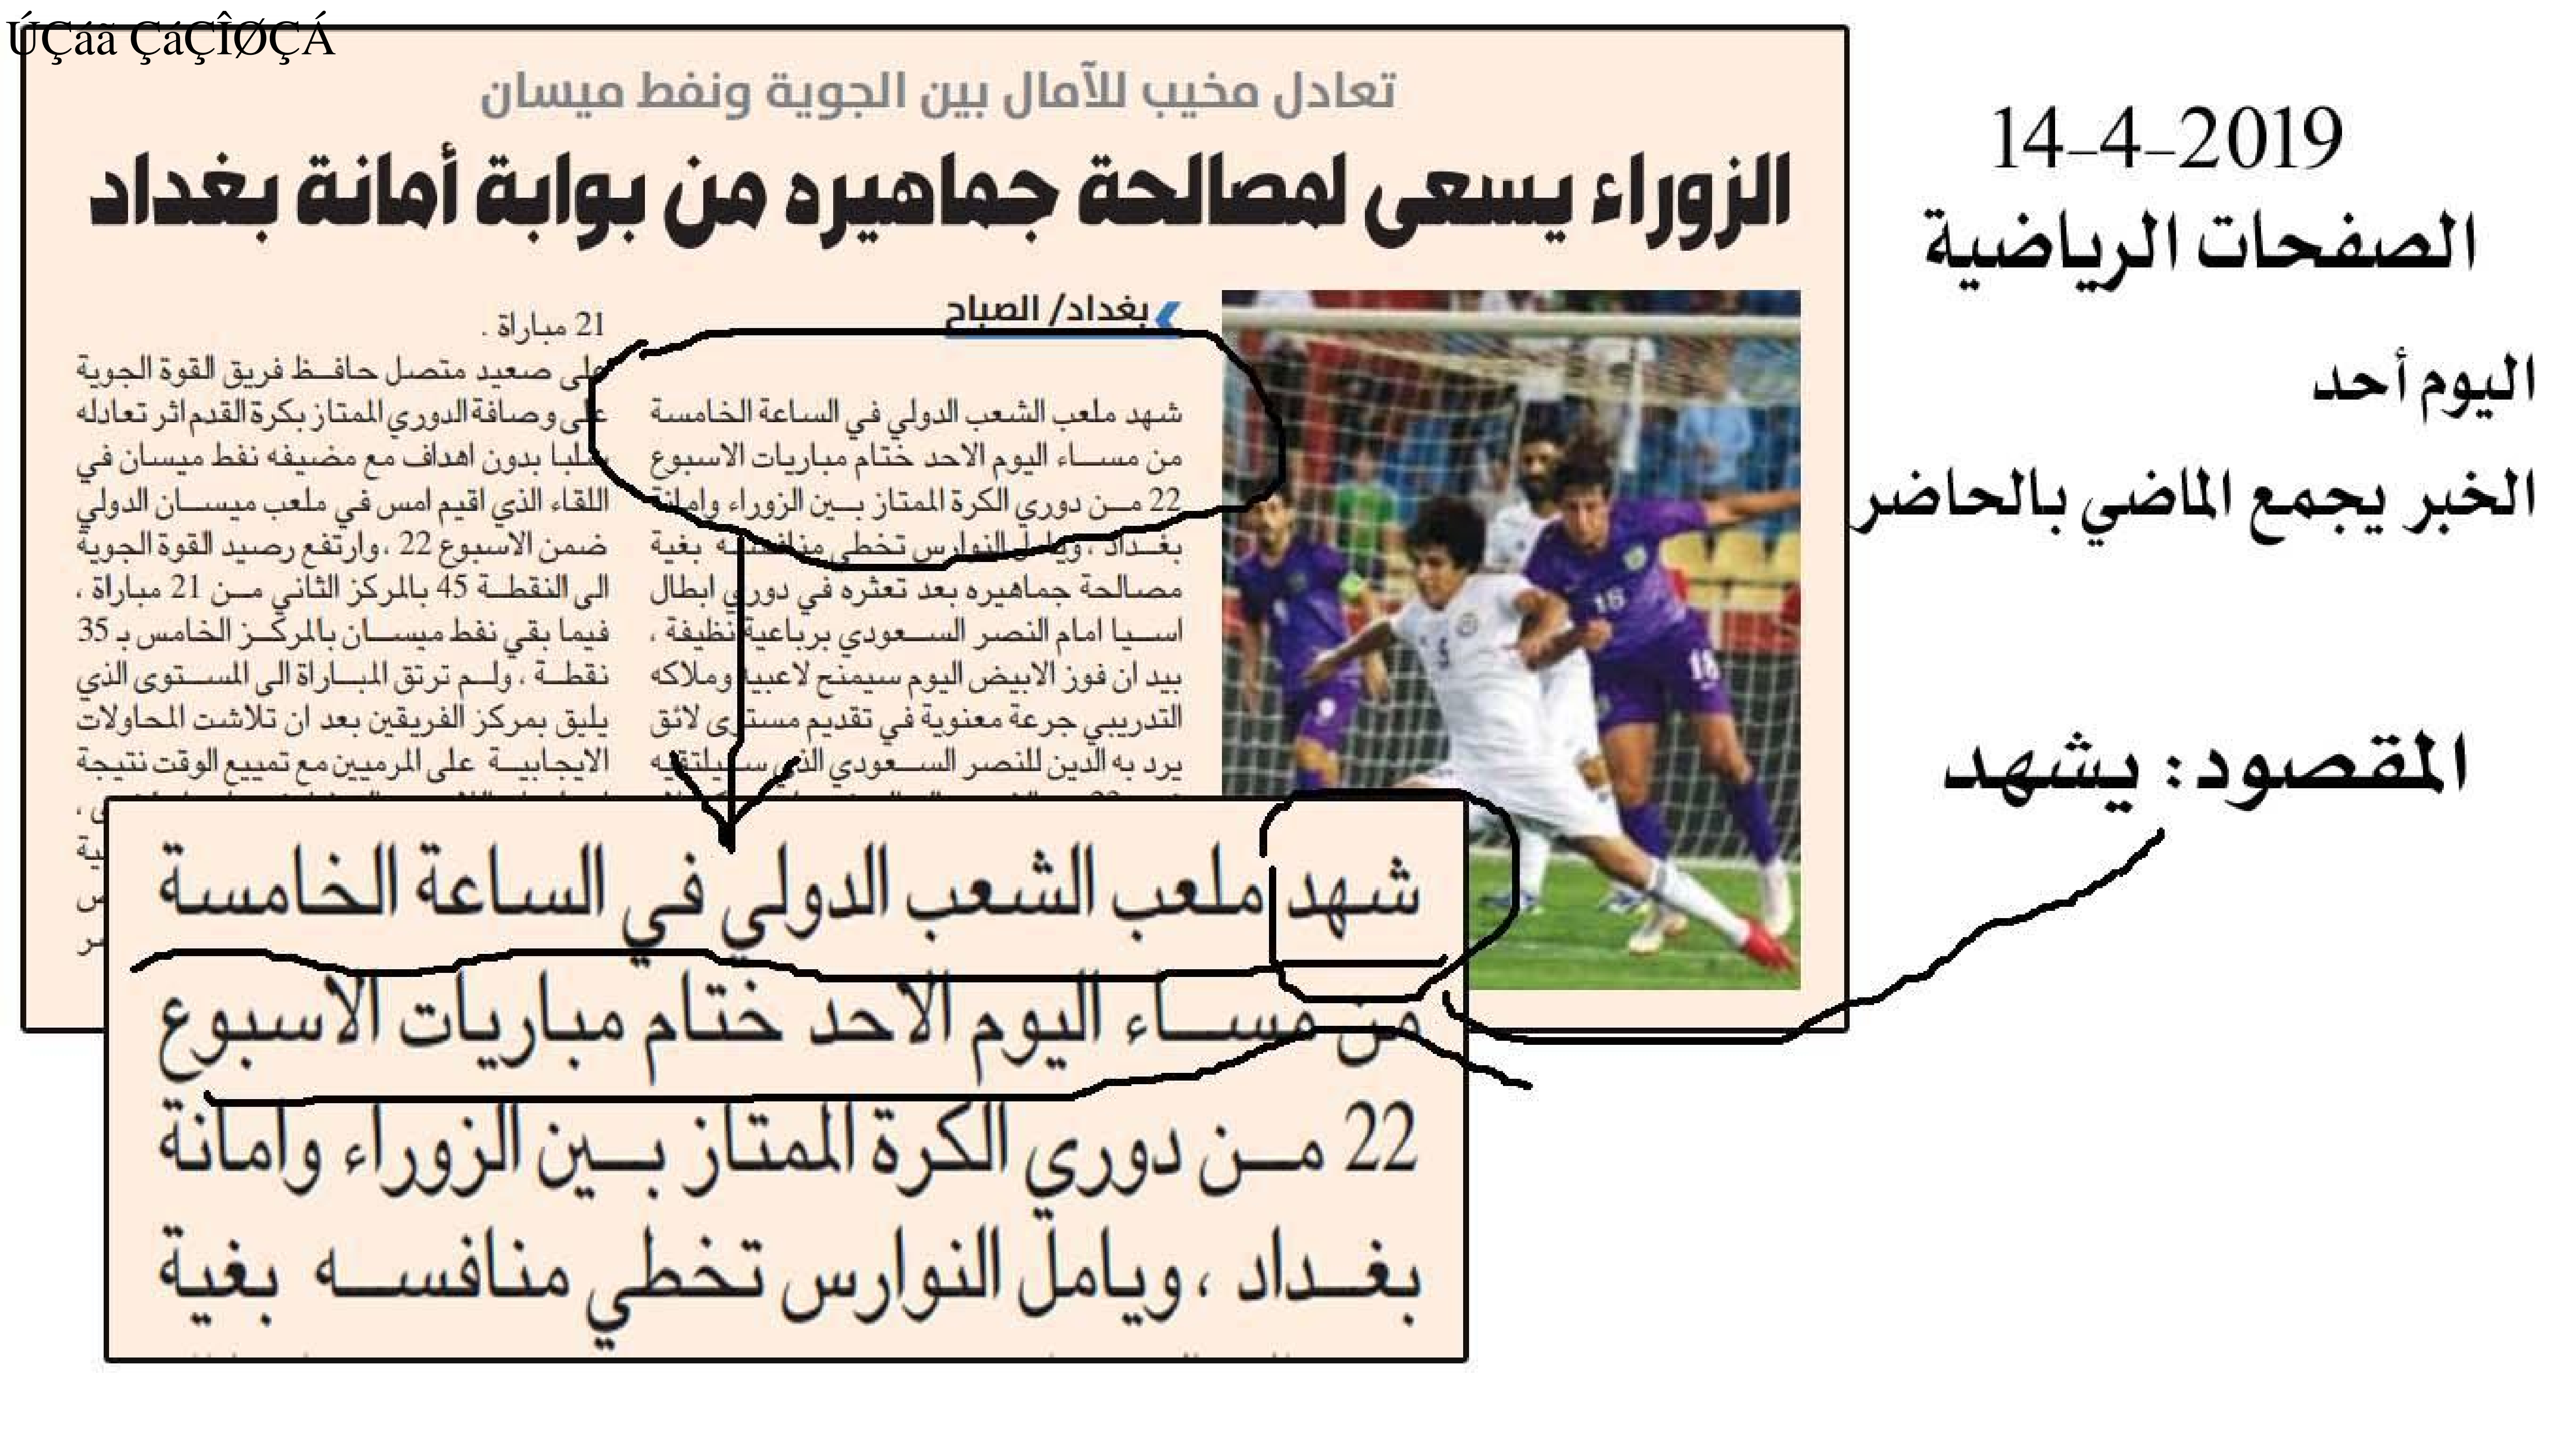 ÚÇáã ÇáÇÎØÇÁ
تعادل مخيب للآمال بين الجوية ونفط ميسان
الزوراء يسعى لمصالحة جماهيره من بوابة أمانة بغداد
بغداد/ الصباح
شهد ملعب الشعب الدولي في الساعة الخامسة
من مساء اليوم الاحد ختام مباريات الاسبوع
22 من دوري الكرة الممتاز بين الزوراء وامانة
بغداد ، ويامل النوارس تخطي منافسه بغية
مصالحة جماهيره بعد تعثره في دوري ابطال
اسيا امام النصر السعودي برباعية نظيفة ،
بيد ان فوز الابيض اليوم سيمنح لاعبيه وملاكه
التدريبي جرعة معنوية في تقديم مستوى لائق
يرد به الدين للنصر السعودي الذي سيلتقيه
21 مباراة .
على صعيد متصل حافظ فريق القوة الجوية
على وصافة الدوري الممتاز بكرة القدم اثر تعادله
سلبا بدون اهداف مع مضيفه نفط ميسان في
اللقاء الذي اقيم امس في ملعب ميسان الدولي
ضمن الاسبوع 22 ،وارتفع رصيد القوة الجوية
الى النقطة 45 بالمركز الثاني من 21 مباراة ،
فيما بقي نفط ميسان بالمركز الخامس بـ 35
نقطة ، ولم ترتق المباراة الى المستوى الذي
يليق بمركز الفريقين بعد ان تلاشت المحاولات
الايجابية على المرميين مع تمييع الوقت نتيجة
شهد ملعب الشعب الدولي في الساعة الخامسة
من مساء اليوم الاحد ختام مباريات الاسبوع
22 من دوري الكرة الممتاز بين الزوراء وامانة
بغداد ، ويامل النوارس تخطي منافسه بغية
14-4-2019
الصفحات الرياضية
اليوم أحد
الخبر يجمع الماضي بالحاضر
المقصود: يشهد
18
18
9
5